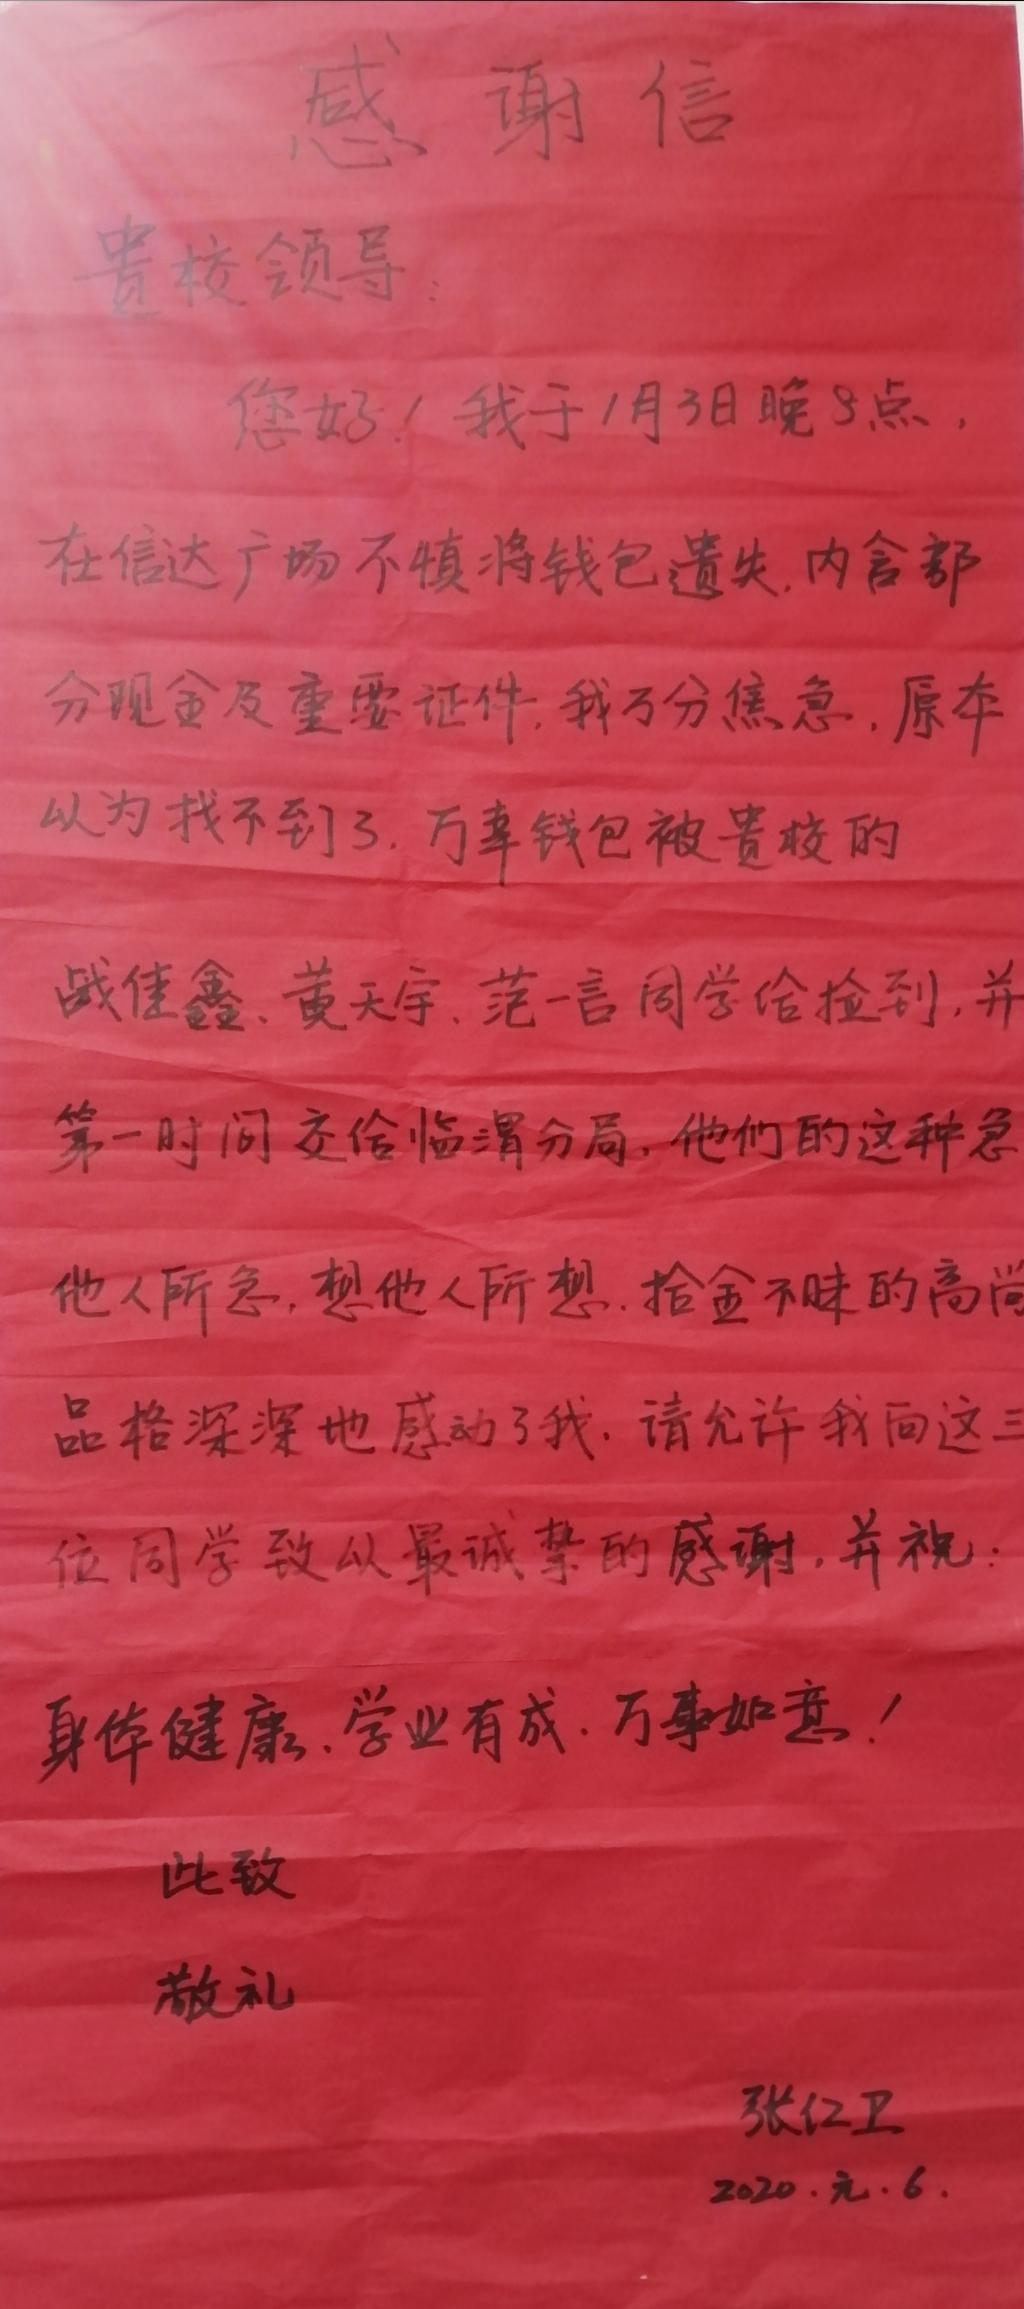 感谢信
贵校领导:
您好！我于1月3日晚9点，
在信达广场不慎将钱包遗失，内含部
分现金及重要证件，我万分焦急，原本
以为找不到了，万幸钱包被贵校的
战佳鑫、黄天宇、范一言同学给捡到，并
第一时间交给临渭分局，他们的这种急
他人所急，想他人所想，拾金不昧的高尚
品格深深地感动了我，请允许我向这三
位同学致以最诚挚的感谢，并祝:
身体健康、学业有成、万事如意！
此致
敬礼
张仁卫
2020.元.6.